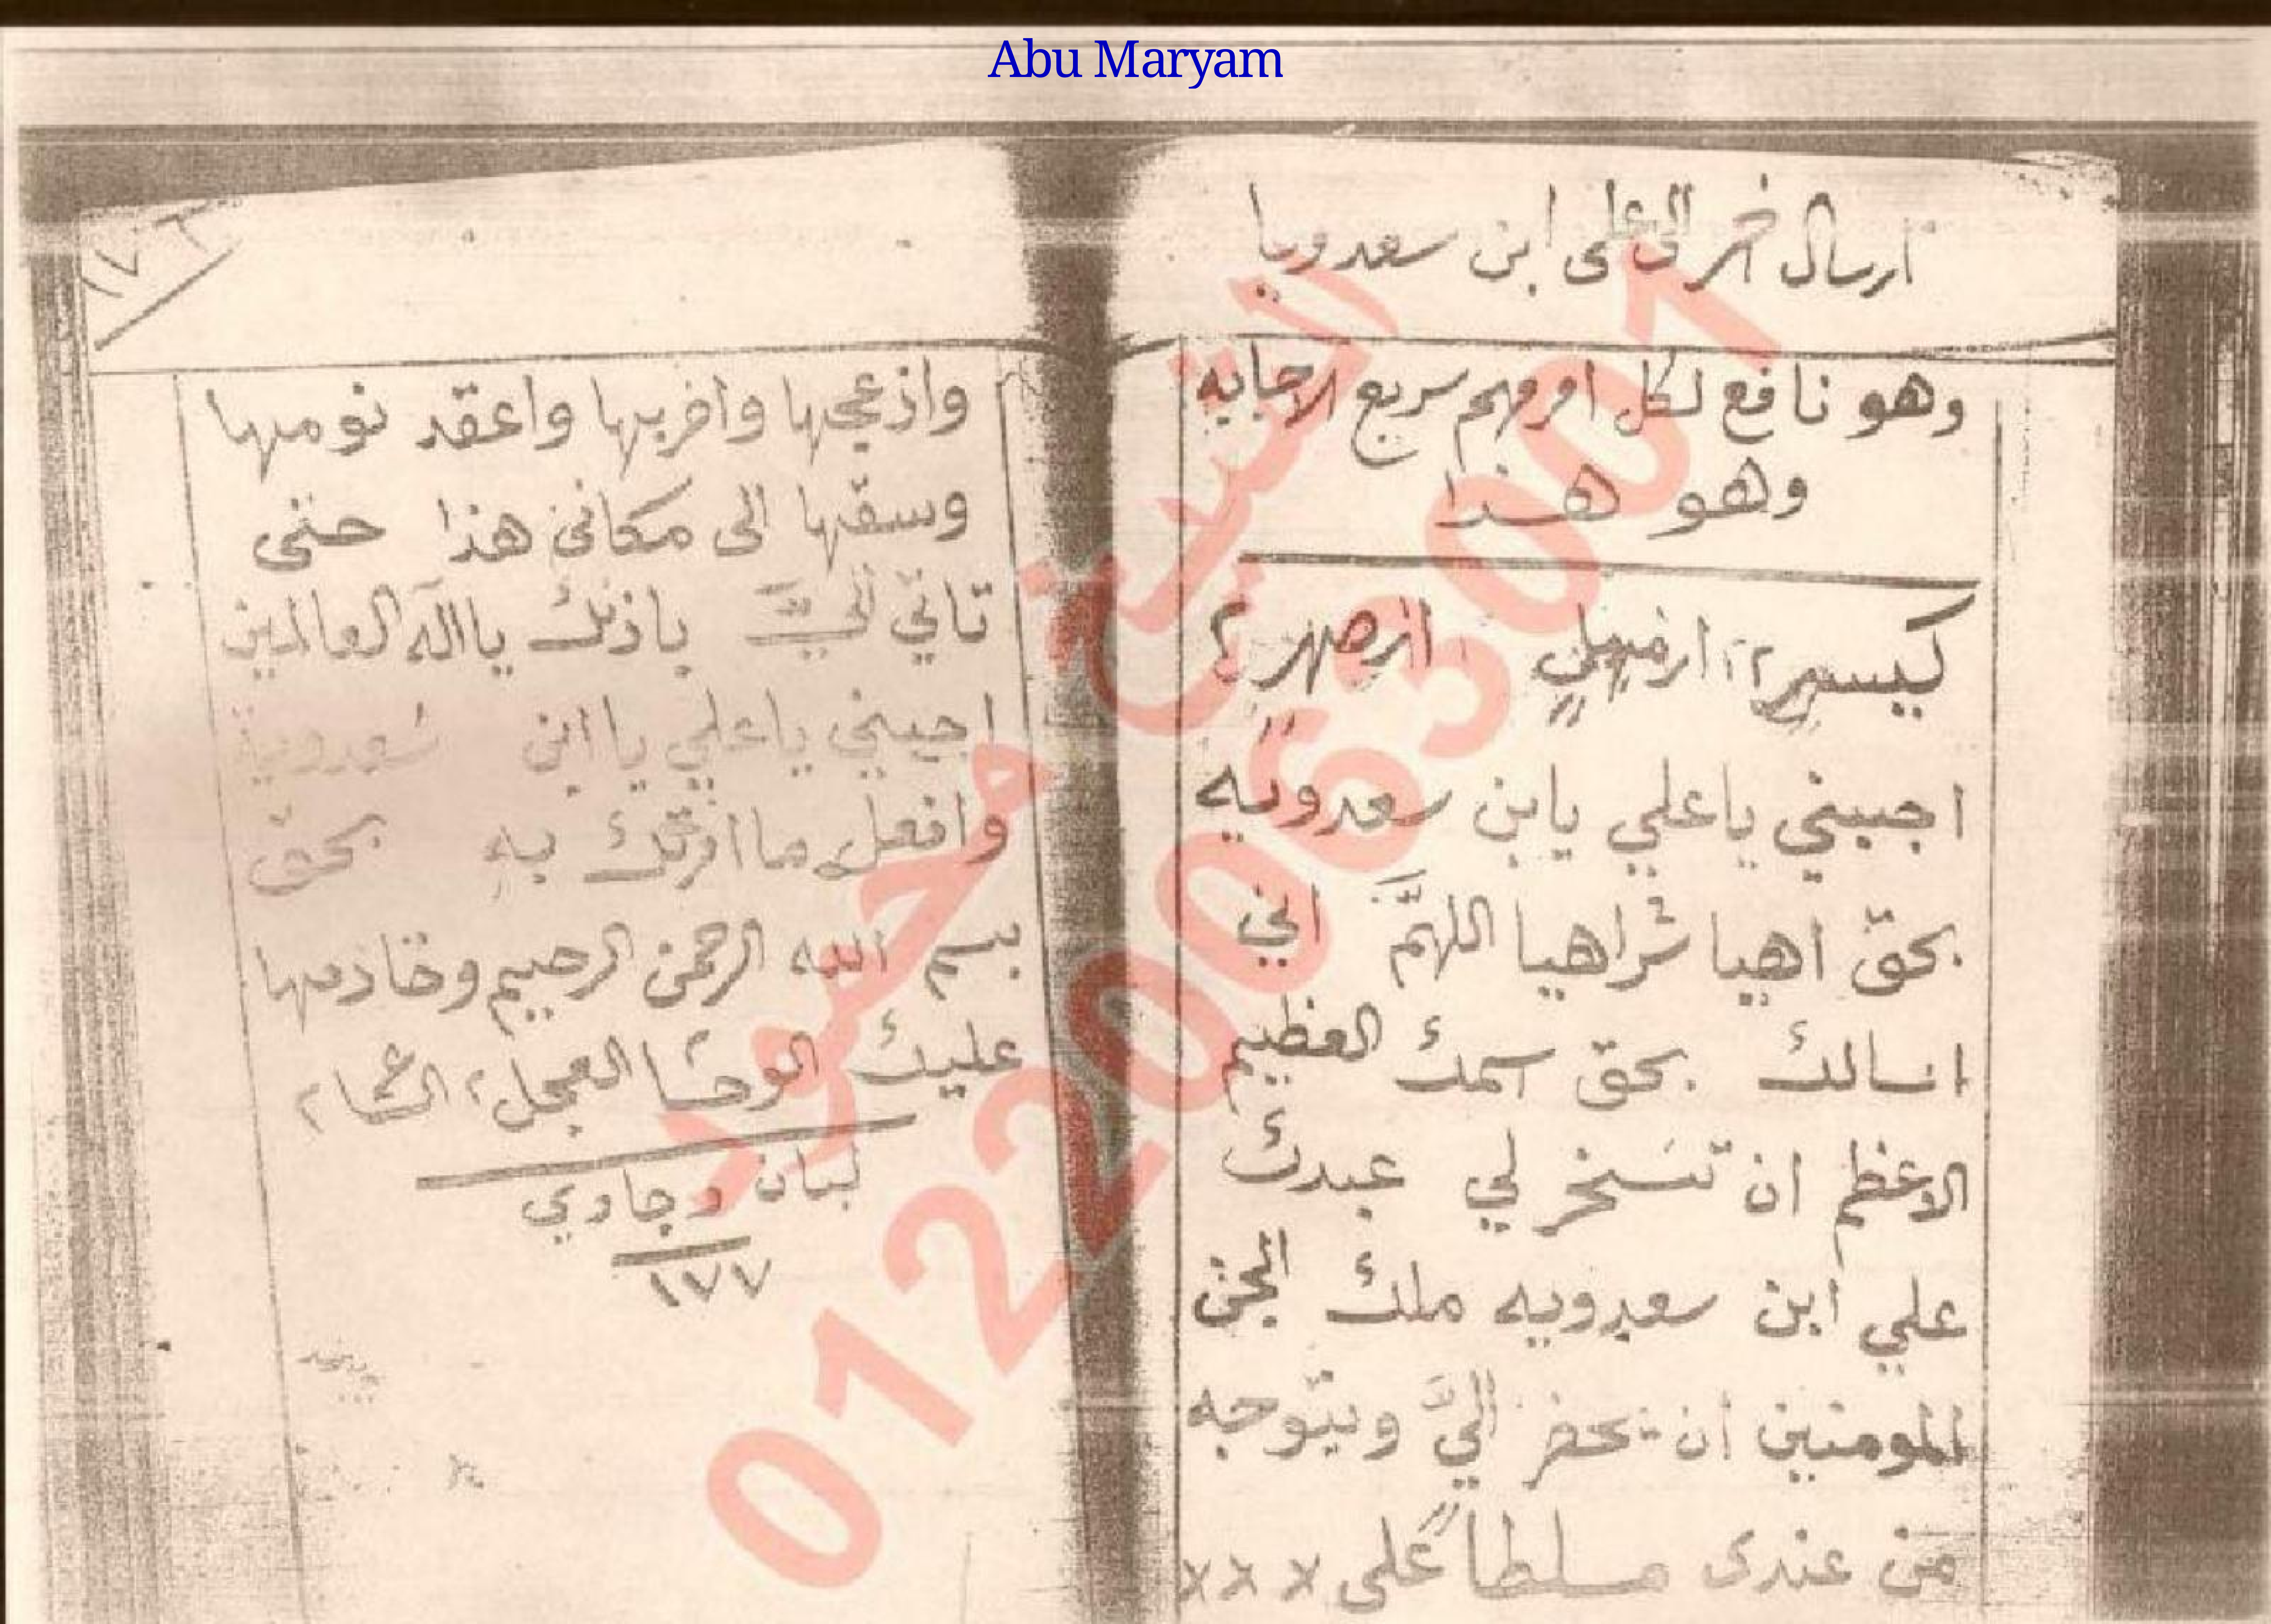 Abu Maryam
ارسال خر الى على ابن سعدويا
وهو نافع لكل امر مهم سريع الاجابه
وهو هذا
اجيبني ياعلي يابن سعدويه
بحقّ اهيا شراهيا اللهمَّ اني
اسالك بحقّ اسمك العظيم
الاعظم ان تسخر لي عبدك
علي ابن سعدويه ملك الجن
المومنين ان يحضر اليَّ ويتوجه
من عندى مسلطاً على x x x
١٧٦
وازعجها واضربها واعقد نومها
وسقها الى مكاني هذا حتى
تاتي اليَّ باذنك يااله العالمين
اجيبني ياعلي ياابن سعدوية
وافعل ما امرتك به بحقّ
بسم الله الرحمن الرحيم وخادمها
عليك الوحا٢ العجل٢ الساعه٢
لبان وجاوي
١٧٧
الشيخ محمود
01220063001